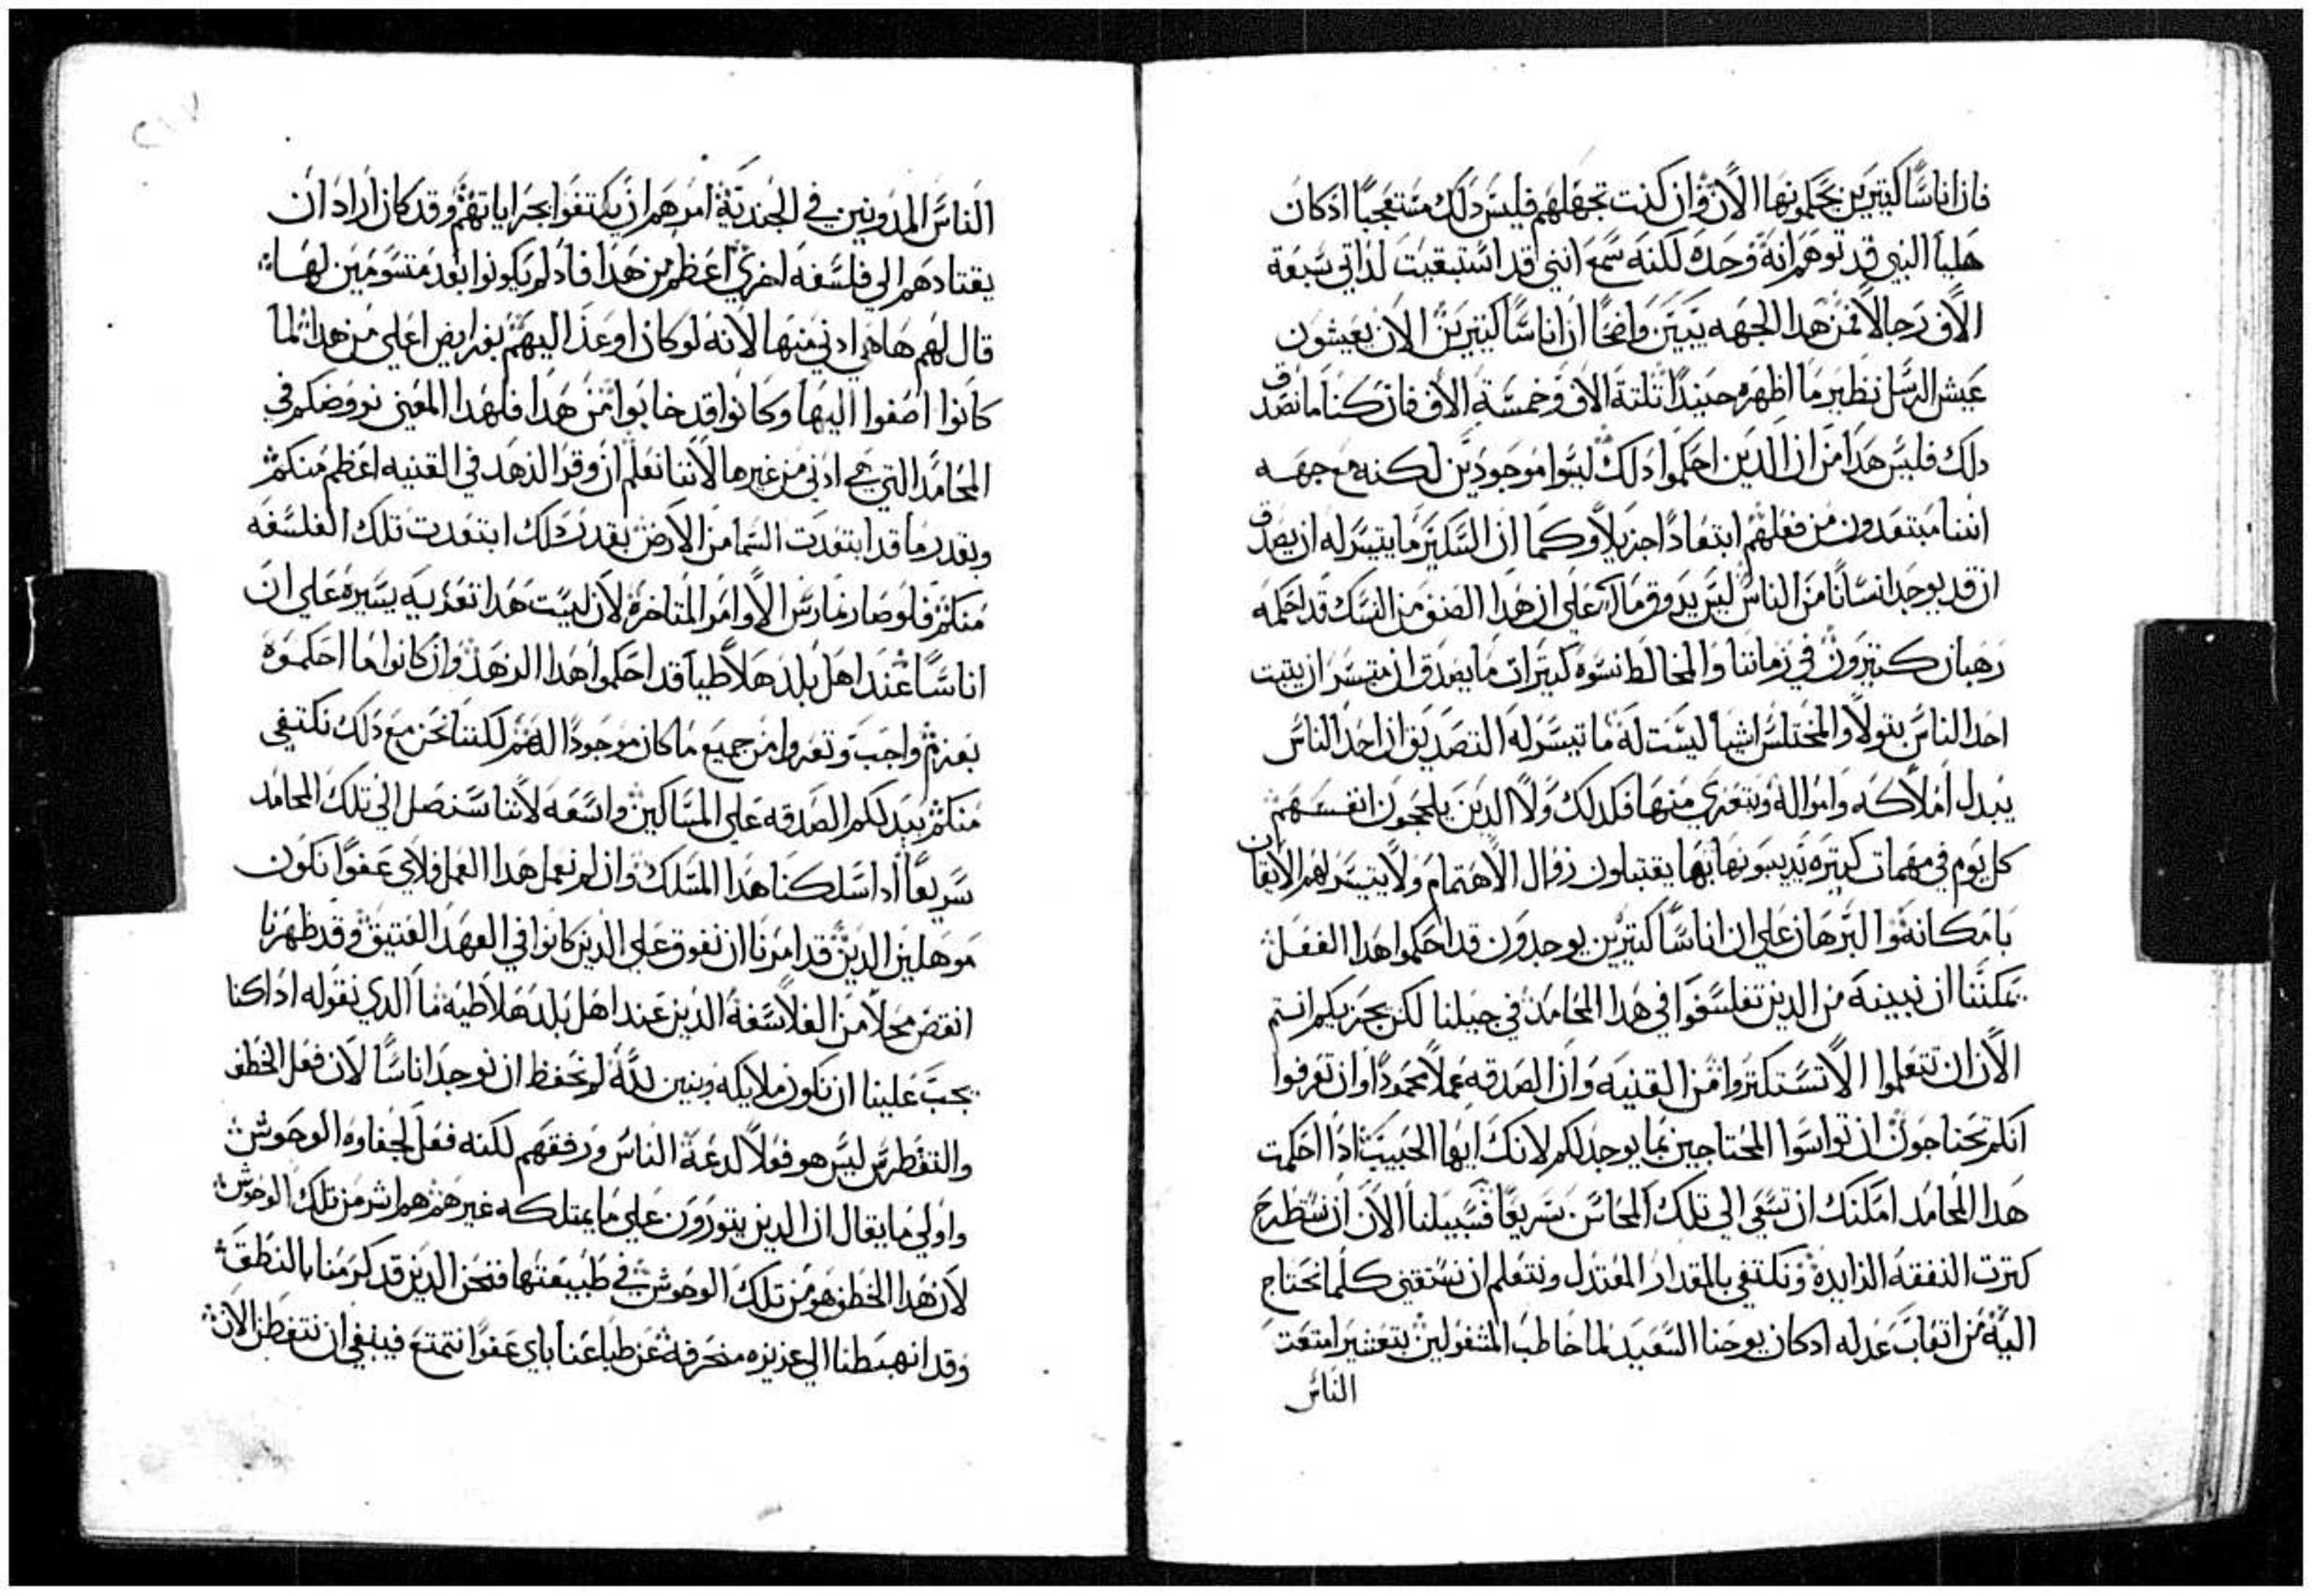 فان اناسًا كتيرين يحكمونها الان وان كنت تجهلهم فليس دلك مستعجبًا ادكان
هليا النبي قد توهم انه وحده لكنه سمع انني قد استبقيت لذاتي سبعة
الاف رجالا فمن هدا الجهه يتبين واضحًا ان اناسًا كتيرين الان يعيشون
عيش الرسل نظير ما اظهره حينيدًا تلتة الاف وخمسة الاف فان كنا ما نصدق
دلك فليس هدا من ان الدين احكموا دلك ليسوا موجودين لكنه مع جهه
اننا مبتعدون من فعلهم ابتعادًا جزيلا وكما ان السكير ما يتيسر له ان يصدق
ان قد يوجد انسانًا من الناس ليس يدوق ما علي ان هدا الصنف من النسك قد احكمه
رهبان كتيرون في زماننا والمخالط نسوه كتيرات ما يصدق ان متيسر ان يتبت
احد الناس بتولا والمختلس اشيا ليست له ما تيسر له التصديق ان احد الناس
يبدل املاكه وامواله ويتعري منها فكدلك ولا الدين يلججون انفسهم
كل يوم في مهمات كتيره يديبونها بها يقتبلون زوال الاهتمام ولا يتيسر لهم الايقان
بامكانه والبرهان علي ان اناسًا كتيرين يوجدون قد احكموا هدا الفعل
يمكننا ان نبينه من الدين تفلسفوا في هدا المحامد في جيلنا لكن يجزيكم انتم
الان ان تتعلموا الا تستكتروا من القنيه وان الصدقه عملا محمودًا وان تعرفوا
انكم تحتاجون ان تواسوا المحتاجين بما يوجد لكم لانك ايها الحبيب ادا احكمت
هدا المحامد امكنك ان تسعي الي تلك المحاسن سريعًا فسبيلنا الان ان نطرح
كترت النفقه الزايده ونكتفي بالمقدار المعتدل ونتعلم ان نستقني كلما نحتاج
اليه من اتعاب عدله ادكان يوحنا السعيد لما خاطب المشغولين بتعشير امتعت
الناس
الناس المدونين في الجنديه امرهم ان يكتفوا بجراياتهم وقد كان اراد ان
يقتادهم الي فلسفه اخري اعظم من هدا فاد لم يكونوا بعد متسومين لها
قال لهم هاهي ادني منها لانه لو كان اوعد اليهم بفرايض اعلي من هدا لما
كانوا اصغوا اليها وكانوا قد خابوا من هدا فلهدا المعني نروضكم في
المحامد التي هي ادني من غيرها لاننا نعلم ان وقر الزهد في القنيه اعظم منكم
وبقدر ما قد ابتعدت السما من الارض بقدر دلك ابتعدت تلك الفلسفه
منكم فلو صار نمارس الاوامر المتاخره لان ليست هدا تعزيه يسيره علي ان
اناسًا عند اهل بلد هلاطيا قد احكموا هدا الزهد وان كانوا ما احكموه
بعزم واجب وتعروا من جميع ما كان موجودًا لهم لكننا نحن مع دلك نكتفي
منكم ببدلكم الصدقه علي المساكين واسعه لاننا سنصل الي تلك المحامد
سريعًا ادا سلكنا هدا المسلك وان لم نعمل هدا العمل فلاي عفوًا نكون
موهلين الدين قد امرنا ان نفوق علي الدين كانوا في العهد العتيق وقد ظهرنا
انقص محلا من الفلاسفة الدين عند اهل بلد هلاطيه ما الدي نقوله ادا كنا
يجب علينا ان نكون ملايكه وبنين لله لم نحفظ ان نوجد اناسًا لان فعل الخطف
والتغطرس ليس هو فعلا لدعة الناس ورفقهم لكنه فعل لجفاوة الوحوش
واولي ما يقال ان الدين يتورون علي ما يمتلكه غيرهم هم اشر من تلك الوحوش
لان هدا الخطف هو من تلك الوحوش في طبيعتها فنحن الدين قد كرمنا بالنطق
وقد انهبطنا الي غريزه منحرفه عن طباعنا باي عفوًا نتمتع فينبغي ان نتفطن الان